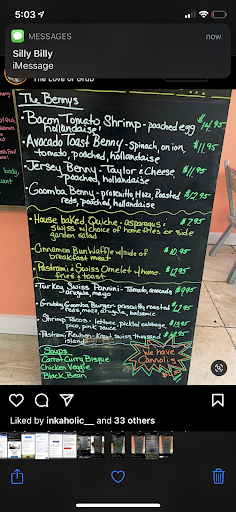 5:03
MESSAGES
now
Silly Billy
iMessage
The Love of Grub
The Bennys
Bacon Tomato Shrimp - poached egg
hollandaise $14.95
Avocado Toast Benny - spinach, onion,
tomato, poached, hollandaise $11.95
Jersey Benny - Taylor & Cheese,
poached, hollandaise $11.95
Goomba Benny - prosciutto, Mozz, Roasted
reds, poached, hollandaise $12.95
House baked Quiche - asparagus &
swiss w/ choice of home fries or side
garden salad $7.95
Cinnamon Bun Waffle w/ side of
breakfast meat $10.95
Pastrami & Swiss Omelet w/ home-
fries & toast $12.95
Turkey Swiss Pannini - Tomato, avocado,
arugula, mayo
Grubby Goomba Burger - prosciutto, roasted
reds, mozz, arugula, balsamic
Shrimp Tacos - lettuce, pickled cabbage,
pico, pink sauce
Pastrami Reuben - Kraut, swiss, thousand
island
Soups
Carrot Curry Bisque
Chicken Veggie
Black Bean
We have
Cannoli's
body
want
Liked by inkaholic__ and 33 others